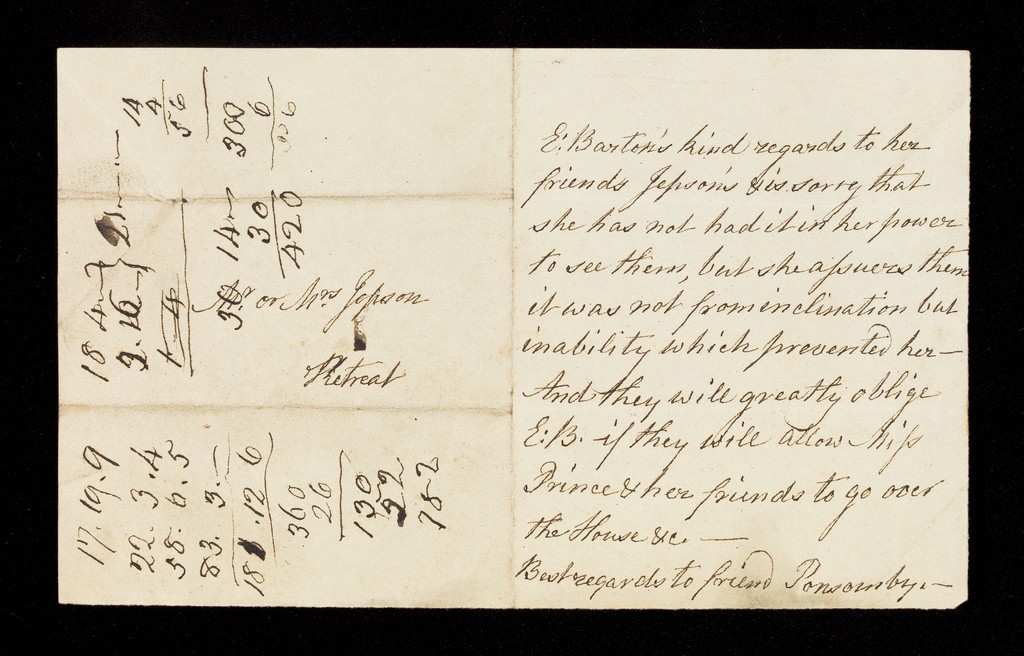 17.19.9
22.3.4
58.6.5
83.3.-
181.12.6
360
26
130
22
782
18 4
3.16
21
1 4
14
30
420
14
4
56
300
6
Mr or Mrs Jepson
Retreat
E: Barton's kind regards to her
friends Jepson's & is sorry that
she has not had it in her power
to see them, but she assures them
it was not from inclination but
inability which prevented her —
And they will greatly oblige
E: B. if they will allow Miss
Prince & her friends to go over
the House &c. —
Best regards to friend Ponsomby. —